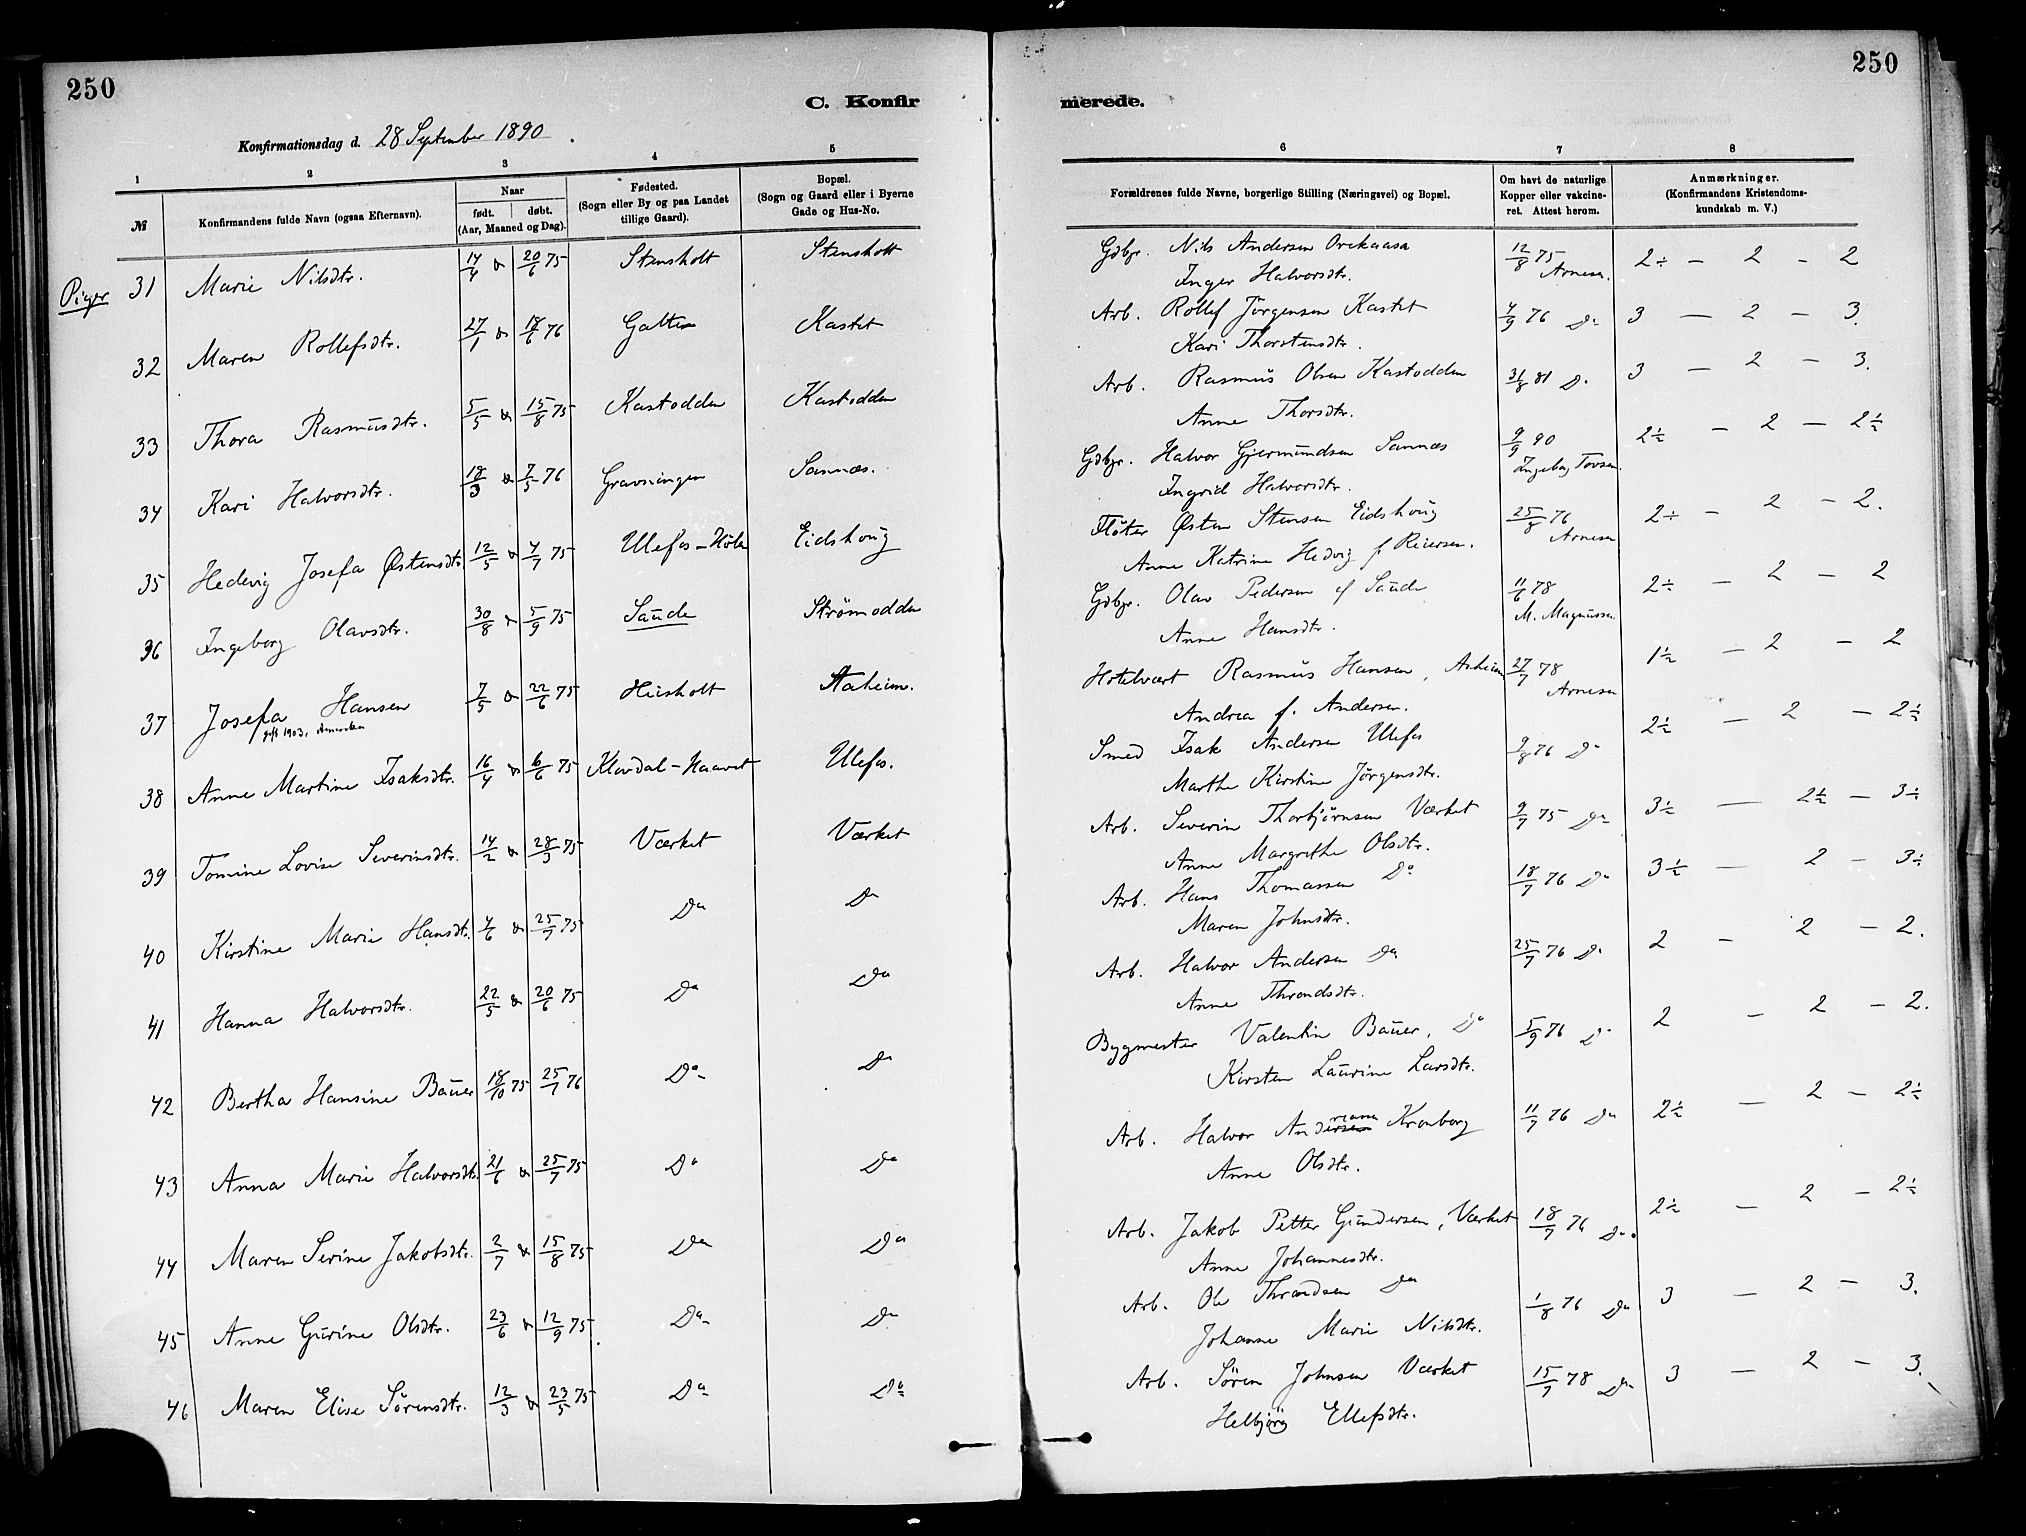 250
C. Konfir
Konfirmationsdag d. 28 September 1890.
1 2 3 4 5
№ Konfirmandens fulde Navn (ogsaa Efternavn). Naar født. døbt. (Aar, Maaned og Dag). Fødested. (Sogn eller By og paa Landet tillige Gaard). Bopæl. (Sogn og Gaard eller i Byerne Gade og Hus-No.
Piger 31 Marie Nilsdtr. 14/4 & 20/6 75 Stensholt Stensholt
32 Maren Rollefsdtr. 27/1 & 18/6 76 Galten Kastet
33 Thora Rasmusdtr. 5/5 & 15/8 75 Kastodden Kastodden
34 Kari Halvorsdtr. 18/3 & 7/5 76 Gravningen Sannæs.
35 Hedevig Josefa Østensdtr 12/5 & 4/7 75 Ulefos-Hola Eidshoug
36 Ingeborg Olavsdtr. 30/8 & 5/9 75 Saude Strømodden
37 Josefa Hansen 7/5 & 22/6 75 Heisholt Aaheim.
gift 1903, Amerika
38 Anne Martine Isaksdtr. 16/4 & 6/6 75 Klovdal-Naavet Ulefos.
39 Tomine Lovise Severinsdtr. 14/2 & 28/3 75 Værket Værket
40 Kirstine Marie Hansdtr. 4/6 & 25/7 75 Do Do
41 Hanna Halvorsdtr. 22/5 & 20/6 75 Do Do
42 Bertha Hansine Bauer 18/10 75 25/7 76 Do Do
43 Anna Marie Halvorsdtr. 21/6 & 25/7 75 Do Do
44 Maren Serine Jakobsdtr. 2/7 & 15/8 75 Do Do
45 Anne Gurine Olsdtr. 23/6 & 12/9 75 Do Do
46 Maren Elise Sørensdtr. 12/3 & 23/5 75 Do Do
250
merede.
6 7 8
Forældrenes fulde Navne, borgerlige Stilling (Næringsvei) og Bopæl. Om havt de naturlige Kopper eller vakcineret. Attest herom. Anmærkninger. (Konfirmandens Kristendomskundskab m. V.)
Gdbgr. Nils Andersen Orekaasa 12/8 75 Arnesen 2÷ – 2 – 2
Inger Halvorsdtr.
Arb. Rollef Jørgensen Kastet 4/9 76 Do 3 – 2 – 3.
Kari Thorstensdtr.
Arb. Rasmus Olsen Kastodden 31/8 81 Do 3 – 2 – 3.
Anne Thorsdtr.
Gdbgr. Halvor Gjermundsen Sannæs 9/9 90 Ingeborg Tovsen. 2½ – 2 – 2½
Ingrid Halvorsdtr.
Fløter Østen Stensen Eidshoug 25/8 76 Arnesen 2÷ – 2 – 2.
Anne Katrine Hedvig f. Reiersen.
Gdbgr. Olav Pedersen af Saude 11/6 78 M. Magnussen 2÷ – 2 – 2
Anne Hansdtr.
Hotelvært Rasmus Hansen, Aaheim 27/7 78 Arnesen 1½ – 2 – 2
Andrea f. Andersen.
Smed Isak Andersen Ulefos 9/8 76 Do 2½ – 2 – 2½
Marthe Kirstine Jørgensdtr.
Arb. Severin Thorbjørnsen Værket 9/7 75 Do 3½ – 2½ – 3÷
Anne Margrethe Olsdtr.
Arb. Hans Thomassen Do 18/7 76 Do 3½ – 2 – 3÷
Maren Johnsdtr.
Arb. Halvor Andersen Do 25/7 76 Do 2 – 2 – 2.
Anne Throndsdtr.
Bygmester Valentin Bauer, Do 5/9 76 Do 2 – 2 – 2.
Kirsten Laurine Larsdtr.
Arb. Halvor Andersen Kronborg 11/7 76 Do 2½ – 2 – 2½
Anne Olsdtr.
Arb. Jakob Petter Gundersen, Værket 18/7 76 Do 2½ – 2 – 2½
Anne Johannesdtr.
Arb. Ole Throndsen Do 1/8 76 Do 3 – 2 – 3.
Johanne Marie Nilsdtr.
Arb. Søren Johnsen Værket 15/7 78 Do 3 – 2 – 3.
Helbjørg Ellefsdtr.